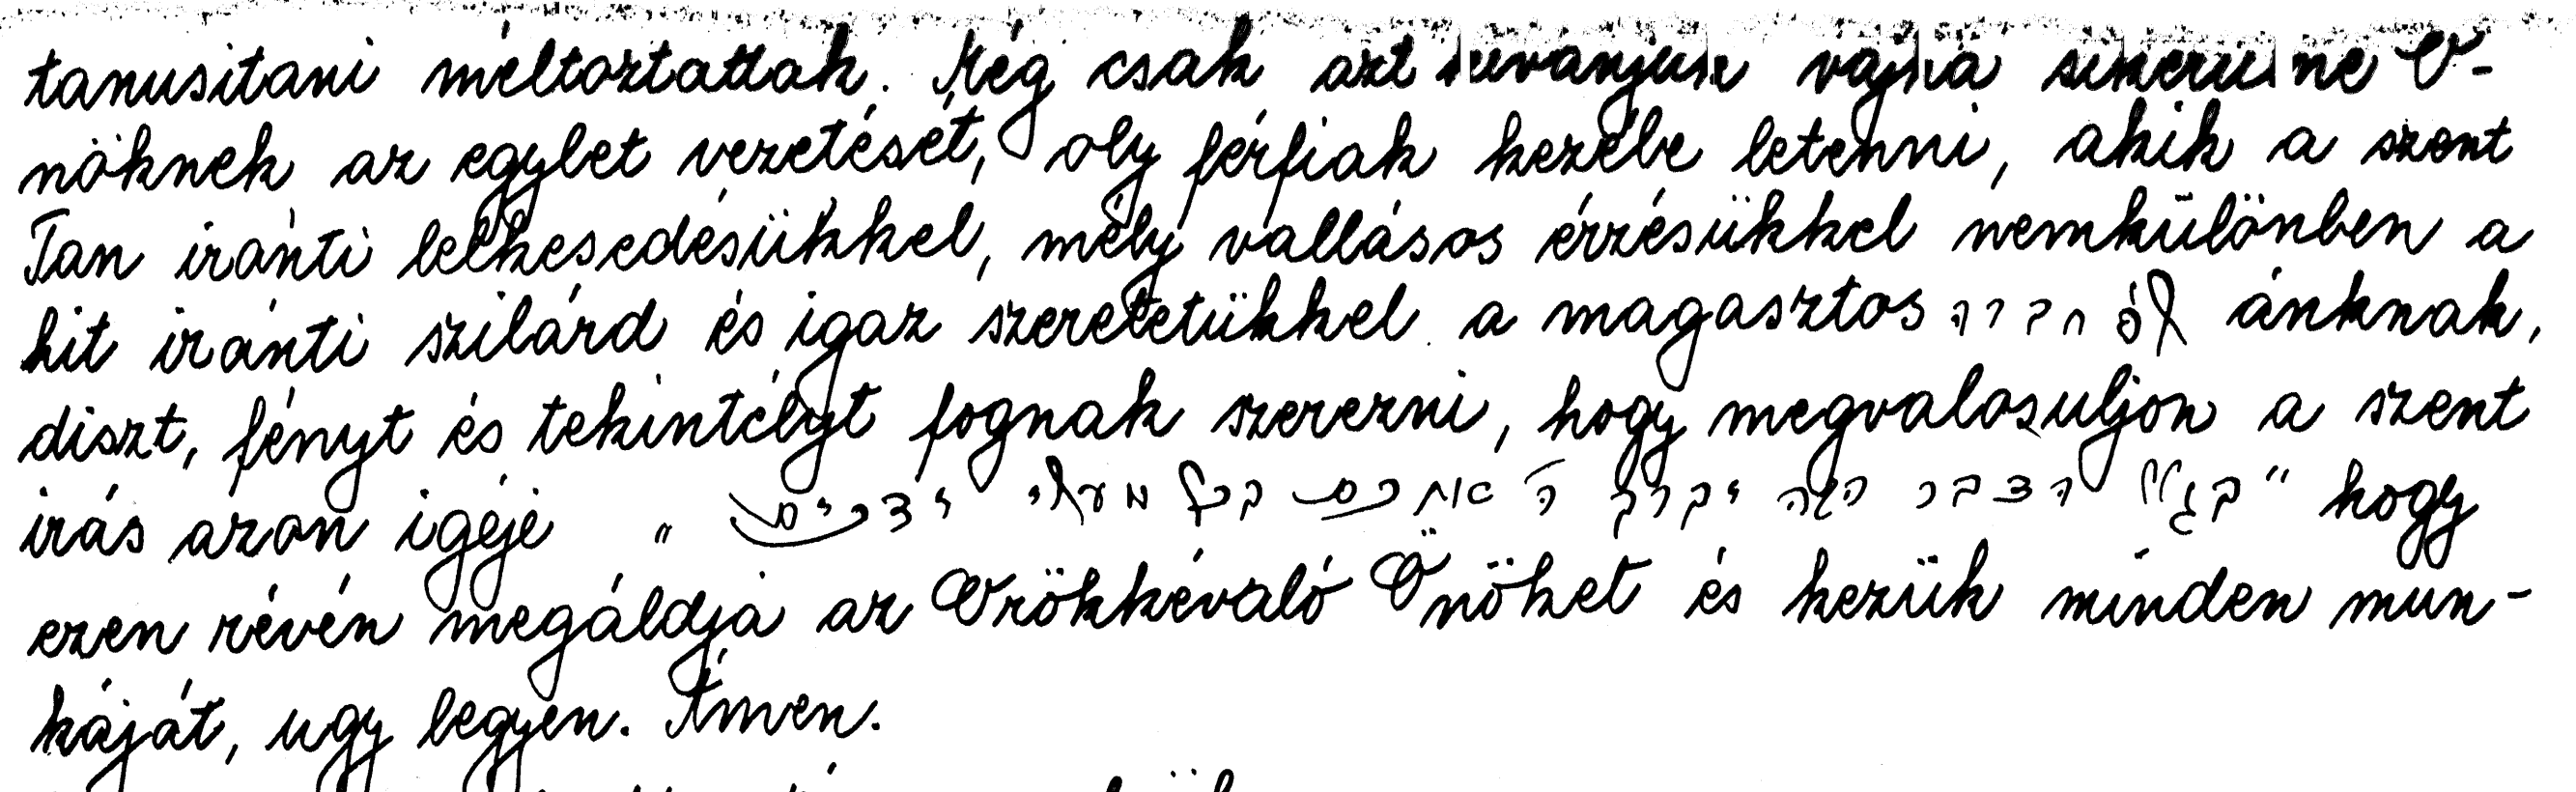 tanusitani méltoztattak. Még csak azt kivánjuk vajha sikerülne Ö-
nöknek az egylet vezetését, oly férfiak kezébe letenni, akik a szent
Tan iránti lelkesedésükkel, mély vallásos érzésükkel nemkülönben a
hit iránti szilárd és igaz szeretetükkel a magasztos חברה ánknak,
diszt, fényt és tekintélyt fognak szerezni, hogy megvalosuljon a szent
irás azon igéje "הדבר הזה יברך ה' אתכם בכל מעשי ידיכם" hogy
ezen révén megáldja az Örökkévaló Önöket és kezük minden mun-
káját, ugy legyen. Ámen.